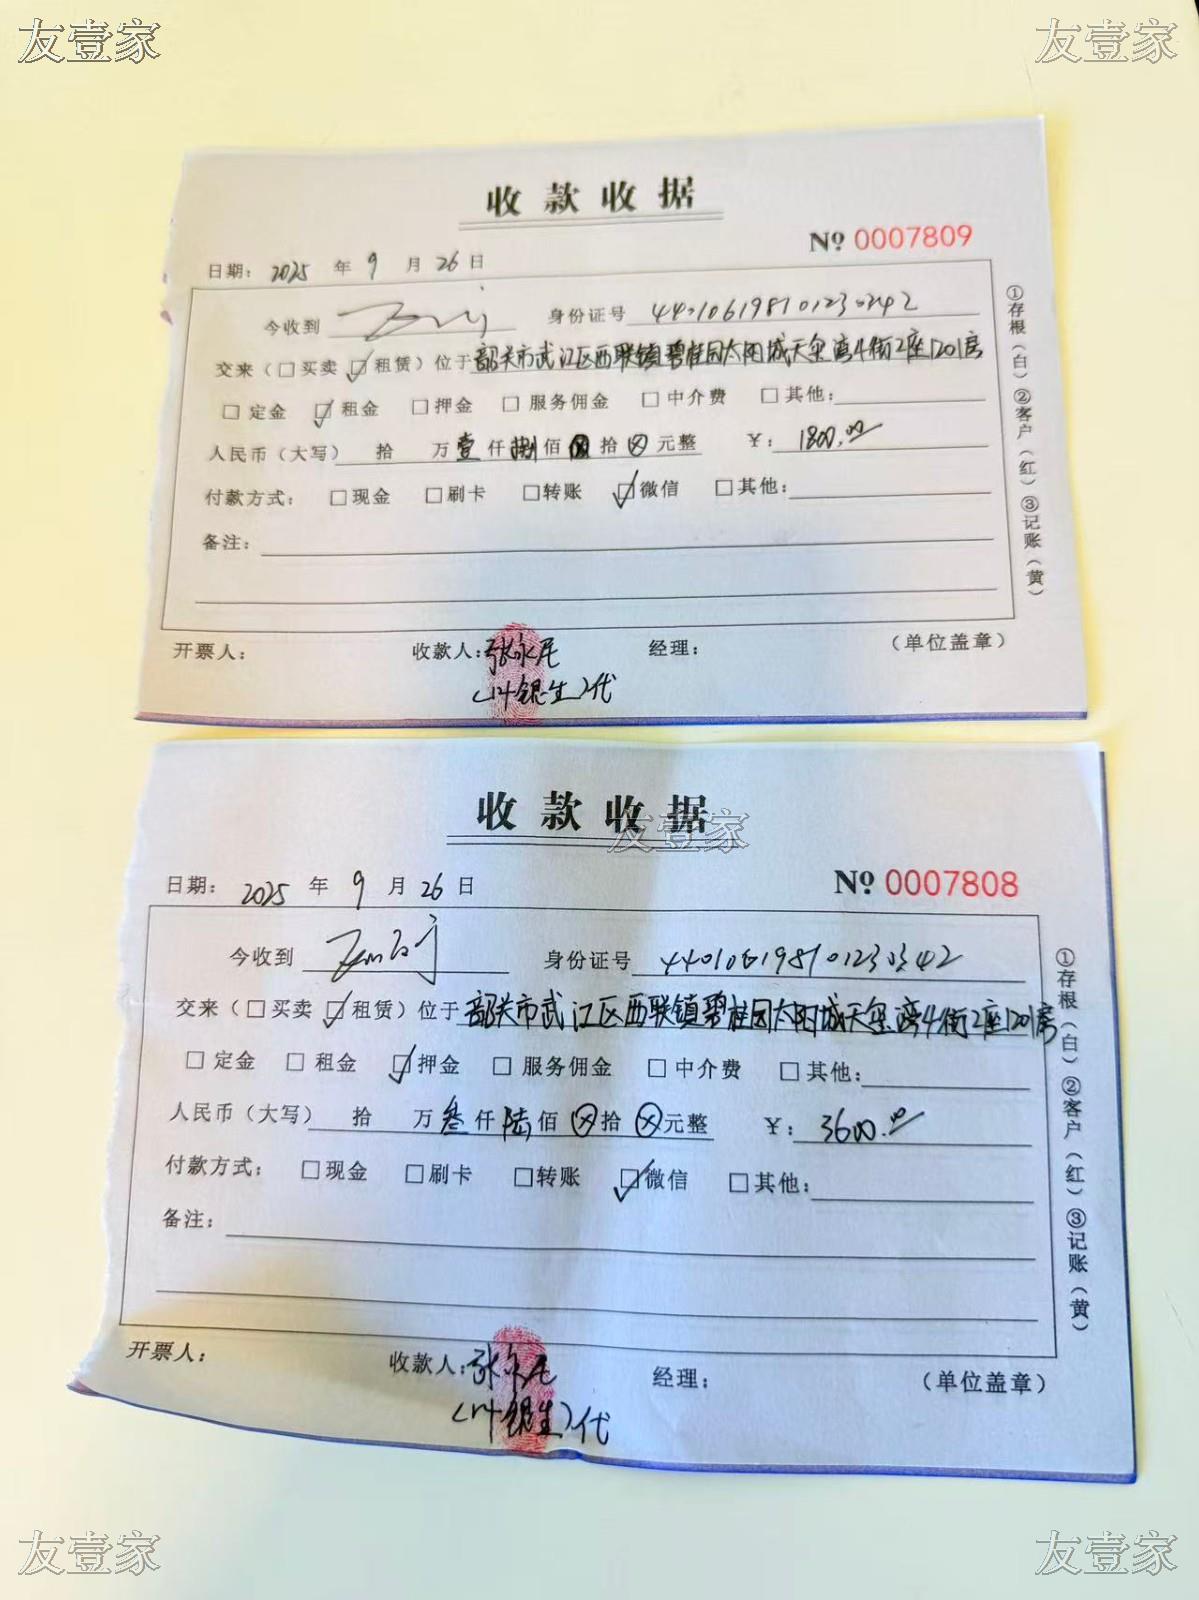 友壹家 友壹家
收款收据
№ 0007809
日期: 2025 年 9 月 26 日
今收到 身份证号
交来（□买卖 ☑租赁）位于韶关市武江区西联镇碧桂园太阳城天玺湾4街2座1201房
□定金 ☑租金 □押金 □服务佣金 □中介费 □其他:
人民币（大写） 拾 万壹仟捌佰ⓧ拾ⓧ元整 ￥: 1800.00
付款方式: □现金 □刷卡 □转账 ☑微信 □其他:
备注:
开票人: 收款人:张永尼 经理: （单位盖章）
(叶银生)代
①存根（白）②客户（红）③记账（黄）
收款收据
友壹家
№ 0007808
日期: 2025 年 9 月 26 日
今收到 身份证号
交来（□买卖 ☑租赁）位于韶关市武江区西联镇碧桂园太阳城天玺湾4街2座1201房
□定金 □租金 ☑押金 □服务佣金 □中介费 □其他:
人民币（大写） 拾 万叁仟陆佰ⓧ拾ⓧ元整 ￥: 3600.00
付款方式: □现金 □刷卡 □转账 ☑微信 □其他:
备注:
开票人: 收款人:张永尼 经理: （单位盖章）
(叶银生)代
①存根（白）②客户（红）③记账（黄）
友壹家 友壹家